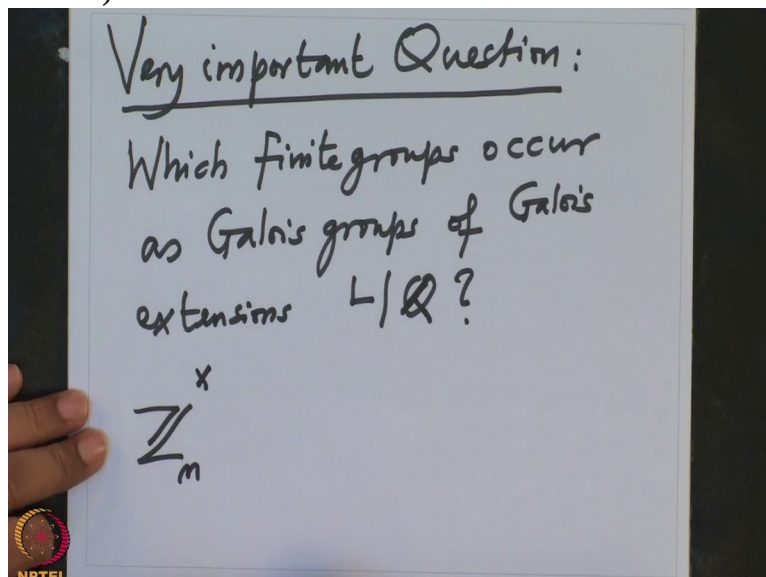 Very important Question:
Which finite groups occur
as Galois groups of Galois
extensions L|Q?
ℤₘˣ
NPTEL